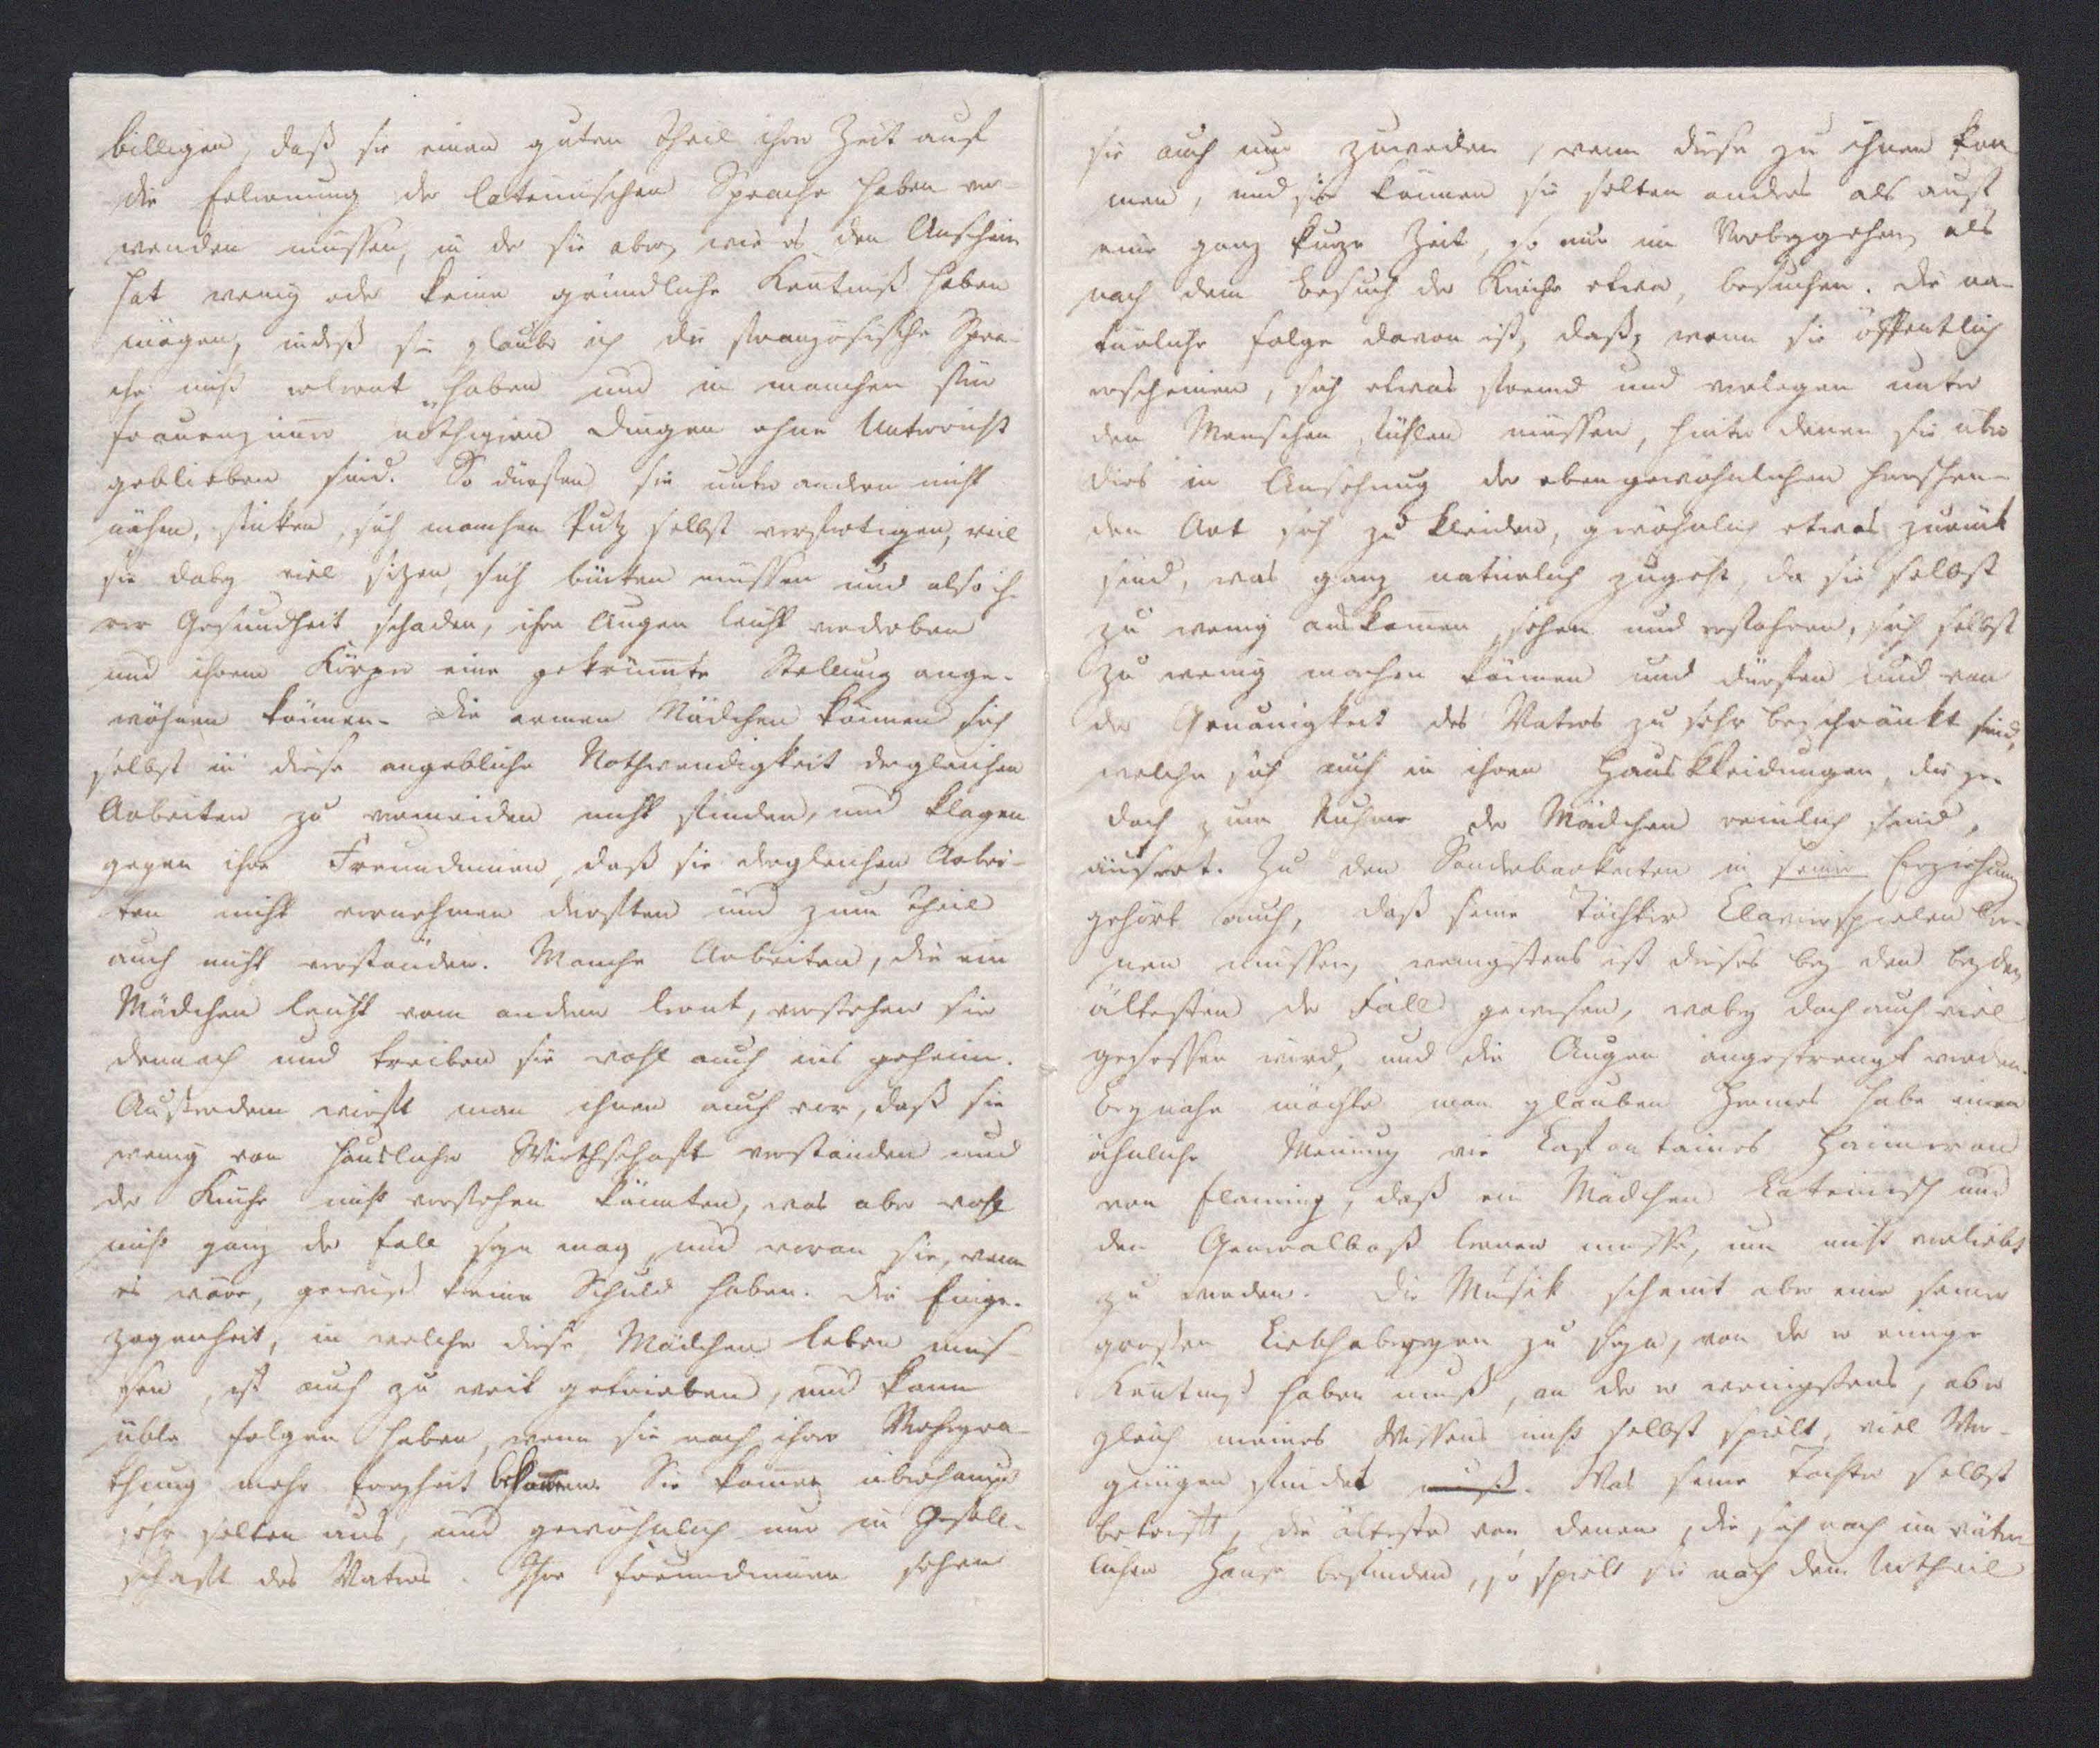 billigen, daß sie einen guten Theil ihrer Zeit auf
die Erlernung der lateinischen Sprache haben ver-
wenden müssen, in der sie aber, wie es den Anschein
hat wenig oder keine gründliche Kentniß haben
mögen, indeß sie glaube ich die französische Spra-
che nicht erlernt haben und in manchen für
Frauenzimmer nöthigen Dingen ohne Unterricht
geblieben sind. So dürfen sie unter andern nicht
nähen, sticken, sich manchen Putz selbst verfertigen, weil
sie dabey viel sitzen, sich bücken müssen und also ih-
rer Gesundheit schaden, ihre Augen leicht verderben
und ihrem Körper eine gekrümte Stellung ange-
wöhnen können. Die armen Mädchen können sich
selbst in diese angebliche Nothwendigkeit dergleichen
Arbeiten zu vermeiden nicht finden, und klagen
gegen ihre Freundinnen, daß sie dergleichen Arbei-
ten nicht vornehmen dürften und zum Theil
auch nicht verständen. Manche Arbeiten, die ein
Mädchen leicht vom andern lernt, verstehen sie
dennoch und treiben sie wohl auch ins geheim.
Ausserdem wirft man ihnen auch vor, daß sie
wenig von häuslicher Wirthschaft verständen und
der Küche nicht vorstehen könnten, was aber wohl
nicht ganz der Fall seyn mag, und woran sie, wenn
es wäre, gewiß keine Schuld haben. Die Einge-
zogenheit, in welcher diese Mädchen leben müs-
sen, ist auch zu weit getrieben, und kann
üble Folgen haben, wenn sie nach ihrer Verheyra-
thung mehr Freyheit bekommen. Sie komen überhaupt
sehr selten aus, und gewöhnlich nur in Gesell-
schaft des Vaters. Ihre Freundinnen sehen
sie auch nur zuweilen, wenn diese zu ihnen kom
men, und sie können sie selten anders als auf
eine ganz kurze Zeit, so nur im Vorbeygehen, als
nach dem Besuch der Kirche etwa, besuchen. Die na-
türliche Folge davon ist, daß, wenn sie öffentlich
erscheinen, sich etwas fremd und verlegen unter
den Menschen fühlen müssen, hinter denen sie über
dies in Ansehung der eben gewöhnlichen herrschen-
den Art sich zu kleiden, gewöhnlich etwas zurück
sind, was ganz natürlich zugeht, da sie selbst
zu wenig auskomen, sehen und erfahren, sich selbst
zu wenig machen können und dürfen und von
der Genauigkeit des Vaters zu sehr beschränkt sind,
welche sich auch in ihren Hauskleidungen, die je-
doch zum Ruhme der Mädchen reinlich sind,
äussert. Zu den Sonderbarkeiten in seiner Erziehung
gehört auch, daß seine Töchter Clavierspielen ler-
nen müssen, wenigstens ist dieses bey den beyden
ältesten der Fall gewesen, wobey doch auch viel
gesessen wird, und die Augen angestrengt werden.
Beynahe möchte man glauben Hermes habe eine
ähnliche Meinung wie Lafontaines Haimeran
von Flaming, daß ein Mädchen Lateinisch und
den Generalbaß lernen müsse, um nicht verliebt
zu werden. Die Musik scheint aber eine seiner
grossen Liebhabereyen zu seyn, von der er einige
Kentniß haben muß, an der er wenigstens, ob er
gleich meines Wissens nicht selbst spielt, viel Ver-
gnügen findet muß. Was seine Tochter selbst
betrifft, die älteste von denen, die sich noch im väter
lichen Hause befinden, so spielt sie nach dem Urtheil